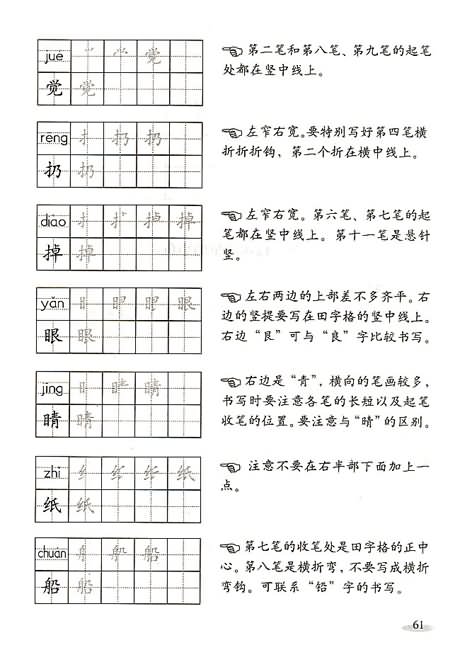 jué
觉 觉
觉
☜ 第二笔和第八笔、第九笔的起笔
处都在竖中线上。
rēng
扔 扔
扔
☜ 左窄右宽。要特别写好第四笔横
折折折钩、第二个折在横中线上。
diào
掉 掉
掉
☜ 左窄右宽。第六笔、第七笔的起
笔都在竖中线上。第十一笔是悬针
竖。
yǎn
眼 眼
眼
☜ 左右两边的上部差不多齐平。右
边的竖提要写在田字格的竖中线上。
右边“艮”可与“良”字比较书写。
jīng
睛 睛
睛
☜ 右边是“青”,横向的笔画较多,
书写时要注意各笔的长短以及起笔
收笔的位置。要注意与“晴”的区别。
zhǐ
纸 纸
纸
☜ 注意不要在右半部下面加上一
点。
chuán
船 船
船
☜ 第七笔的收笔处是田字格的正中
心。第八笔是横折弯,不要写成横折
弯钩。可联系“铅”字的书写。
61